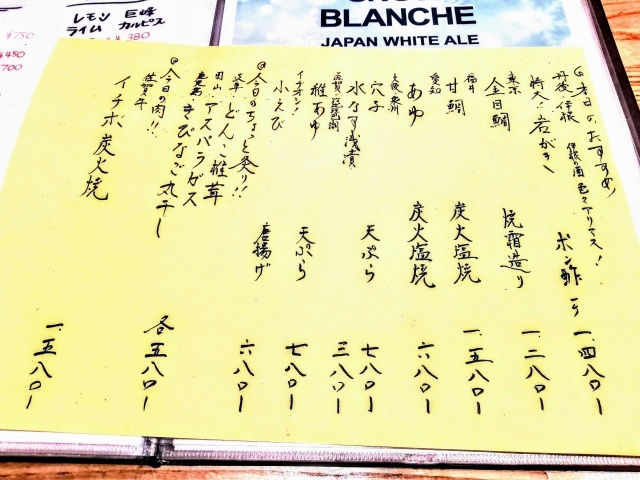 レモン 巨峰
ライム カルピス
¥750
¥450
700
¥380
BLANCHE
JAPAN WHITE ALE
◎本日のおすすめ
伊根の酒 色々アリマス!
丹後・伊根
特大!岩がき ポン酢 一ケ 一、四八〇ー
東京
金目鯛 焼霜造り 一、二八〇ー
福井
甘鯛 炭火塩焼 一、五八〇ー
愛知
あゆ 炭火塩焼 六八〇ー
大阪・泉州
穴子 天ぷら 七八〇ー
水なす浅漬 三八〇ー
滋賀・琵琶湖
稚あゆ 天ぷら 七八〇ー
イチオシ!
小えび 唐揚げ 六八〇ー
◎今日のちょっと炙り!!
どんこ椎茸
岡山・アスパラガス
きびなご丸干し
各五八〇ー
◎今日の肉!!
佐賀牛
イチボ 炭火焼 一、五八〇ー